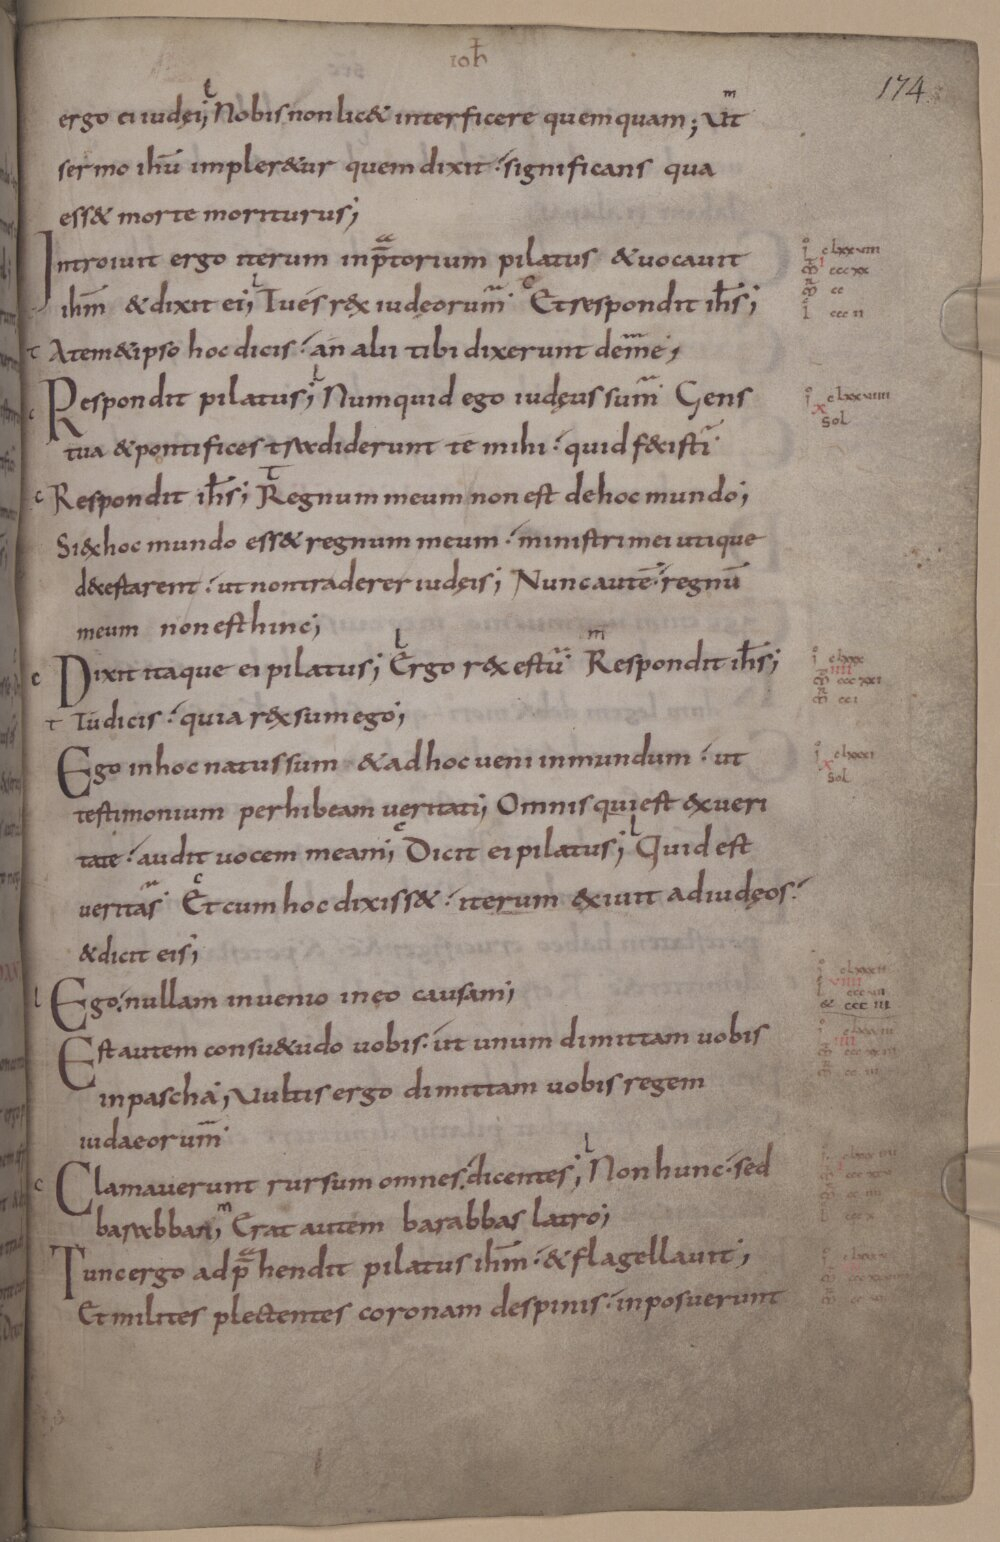 ioh
174
ergo ei iudęi; Nobis non lic& interficere quemquam; Ut
sermo ihū impler&ur quem dixit · significans qua
ess& morte moriturus;
Introiuit ergo iterum in p̄torium pilatus &uocauit
ihm̄ &dixit ei; Tu es r&x iudęorum Et respondit ihs̄;
A tem&ipso hoc dicis · an alii tibi dixerunt de me;
Respondit pilatus; Numquid ego iudęus sum Gens
tua &pontifices tradiderunt te mihi · quid f&cisti
Respondit ihs̄; Regnum meum non est dehoc mundo;
Si&hoc mundo ess& regnum meum · ministri mei utique
d&estarent · ut non traderer iudęis; Nunc autē · regnū
meum non est hinc;
Dixit itaque ei pilatus; Ergo r&x es tu Respondit ihs̄;
Tu dicis · quia r&x sum ego;
Ego in hoc natus sum &ad hoc ueni in mundum · ut
testimonium perhibeam ueritati; Omnis qui est &x ueri
tate · audit uocem meam; Dicit ei pilatus; Quid est
ueritas Et cum hoc dixiss& · iterum &xiuit ad iudęos ·
&dicit eis;
Ego · nullam inuenio in eo causam;
Est autem consu&udo uobis · ut unum dimittam uobis
in pascha; Uultis ergo dimittam uobis regem
iudaeorum
Clamauerunt rursum omnes · dicentes; Non hunc · sed
barabban; Erat autem barabbas latro;
Tunc ergo adp̄hendit pilatus ihm̄ · &flagellauit;
Et milites plectentes coronam de spinis · inposuerunt